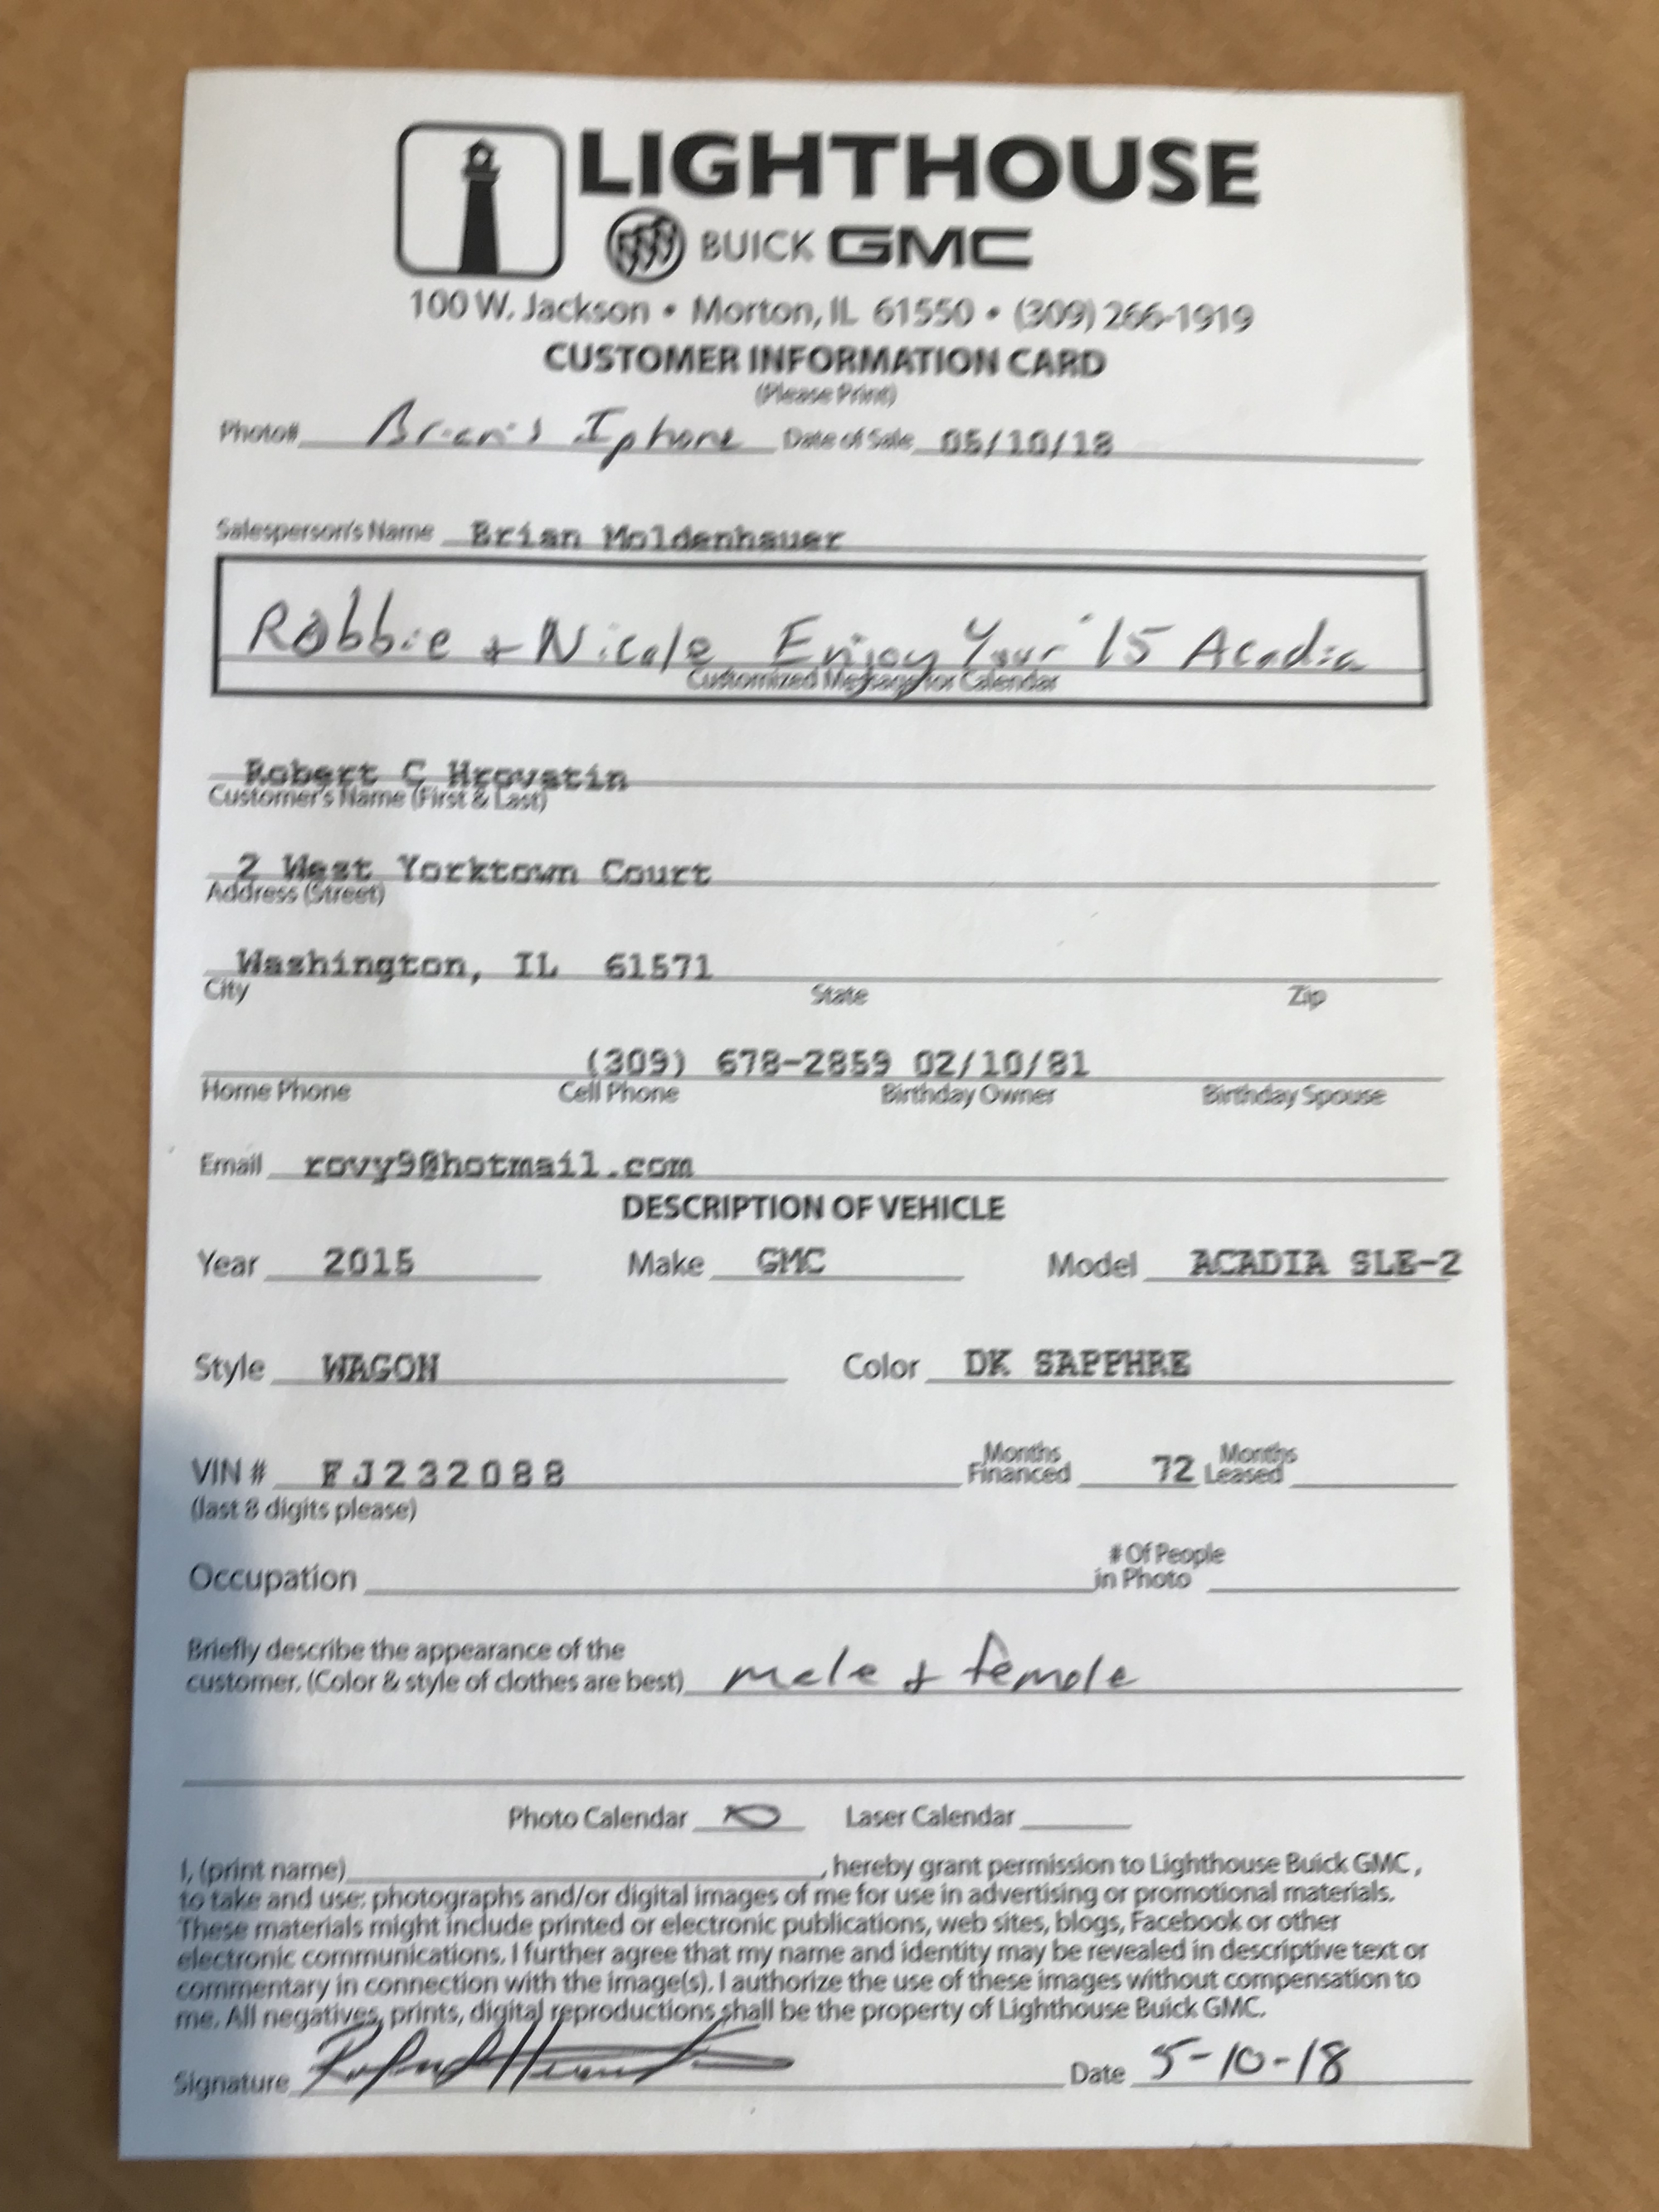 LIGHTHOUSE
BUICK GMC
100 W. Jackson • Morton, IL 61550 • (309) 266-1919
CUSTOMER INFORMATION CARD
(Please Print)
Photo# Brian's Iphone Date of Sale 05/10/18
Salesperson's Name Brian Moldenhauer
Robbie + Nicole Enjoy Your '15 Acadia
Customized Message for Calendar
Robert C Hrovatin
Customer's Name (First & Last)
2 West Yorktown Court
Address (Street)
Washington, IL 61571
City State Zip
(309) 678-2859 02/10/81
Home Phone Cell Phone Birthday Owner Birthday Spouse
Email rovy9@hotmail.com
DESCRIPTION OF VEHICLE
Year 2015 Make GMC Model ACADIA SLE-2
Style WAGON Color DK SAPPHRE
VIN # FJ232088 Months Financed 72 Months Leased
(last 8 digits please)
Occupation # Of People in Photo
Briefly describe the appearance of the
customer. (Color & style of clothes are best) male + female
Photo Calendar Laser Calendar
I, (print name) , hereby grant permission to Lighthouse Buick GMC,
to take and use: photographs and/or digital images of me for use in advertising or promotional materials.
These materials might include printed or electronic publications, web sites, blogs, Facebook or other
electronic communications. I further agree that my name and identity may be revealed in descriptive text or
commentary in connection with the image(s). I authorize the use of these images without compensation to
me. All negatives, prints, digital reproductions shall be the property of Lighthouse Buick GMC.
Signature Date 5-10-18